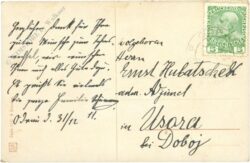 Herzlichen Dank für Ihre
guten Wünsche zum Jahres-
wechsel, wir wünschen
Ihnen auch alles Gute
Es grüßt Sie vielmals
die ganze Familie
31/12 11.
wolgeboren
Herrn
Ernst Hubatschek
adm. Adjunct
in Usora
bei Doboj